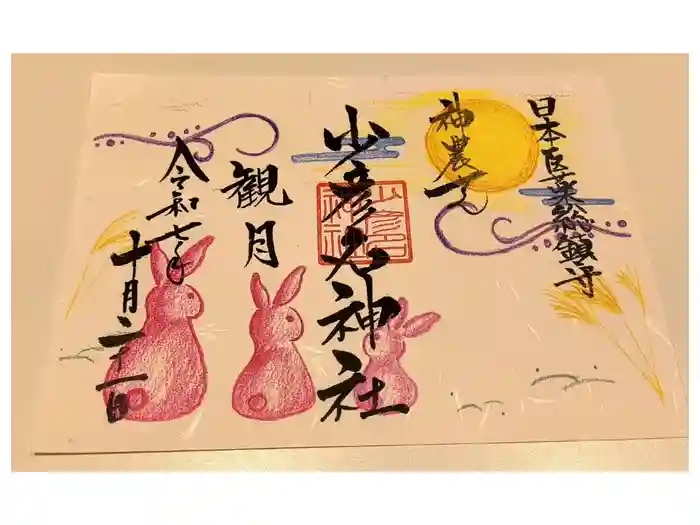 日本医薬総鎮守
神農さん
少彦名神社
観月
令和七年
十月二十一日